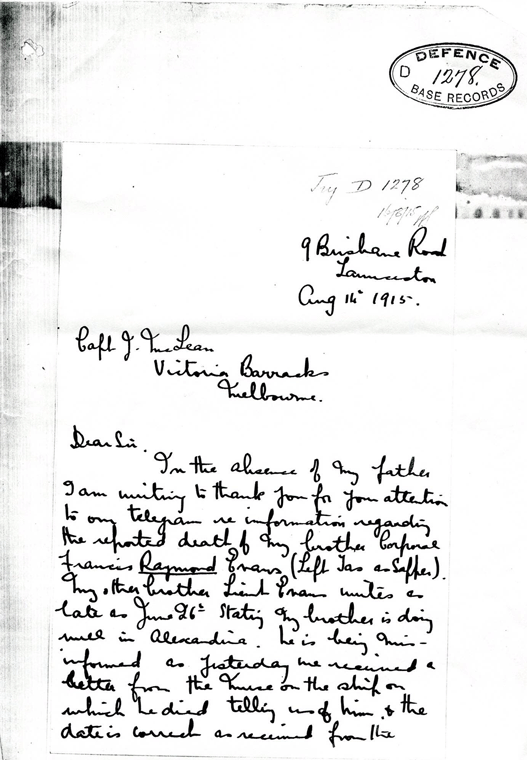 DEFENCE
D 1278.
BASE RECORDS
D 1278
9 Brisbane Road
Launceston
Aug 14th 1915.
Capt J. McLean
Victoria Barracks
Melbourne.
Dear Sir.
In the absence of my father
I am writing to thank you for your attention
to our telegram re information regarding
the reported death of my brother Corporal
Francis Raymond Evans (Left Tas as Sapper).
My other brother Lieut Evans writes as
late as June 26th stating my brother is doing
well in Alexandria. he is being mis-
informed as yesterday we received a
letter from the Nurse on the ship on
which he died telling us of him. & the
date is correct as received from the